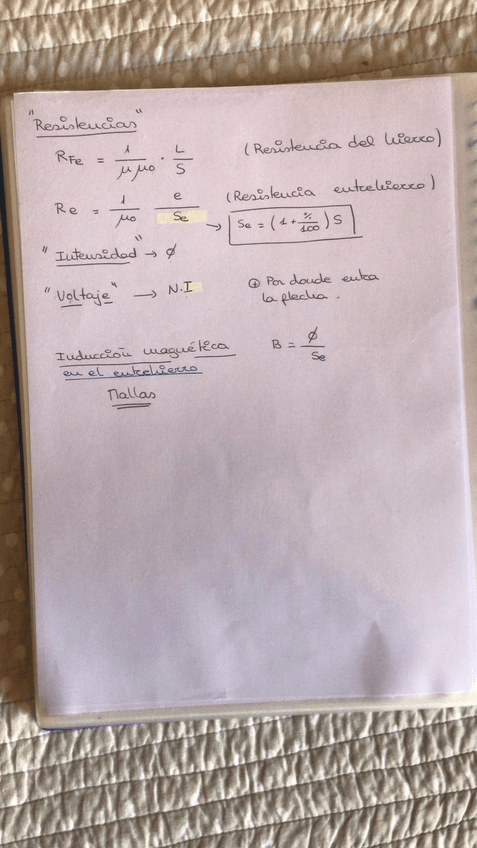 "Resistencias"
R_Fe = 1/(μ μ₀) · L/S (Resistencia del hierro)
R_e = 1/μ₀ e/S_e (Resistencia entrehierro)
→ S_e = (1 + %/100) S
"Intensidad" → ϕ
"Voltaje" → N.I ⊕ Por donde entra
la flecha.
Inducción magnética B = ϕ/S_e
en el entrehierro
Mallas